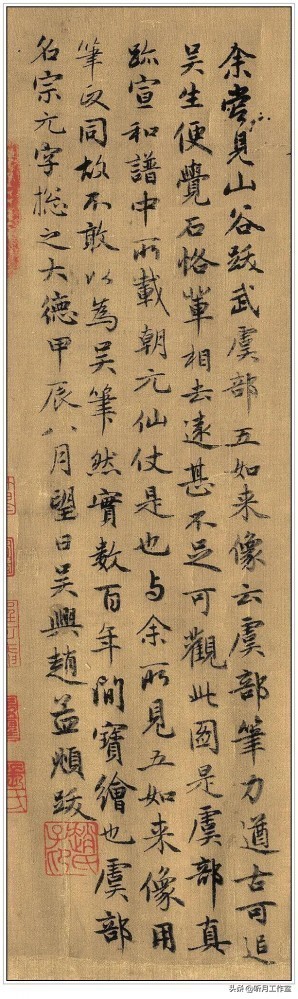 余嘗見山谷跋武虞部五如来像云虞部筆力遒古可追
吴生便覺石恪輩相去遠甚不足可觀此圖是虞部真
跡宣和譜中所載朝元仙仗是也与余所見五如来像用
筆政同故不敢以為吴筆然實數百年間寶繪也虞部
名宗元字緫之大德甲辰八月望日吴興趙孟頫跋
趙氏子昂
头条@听月工作室